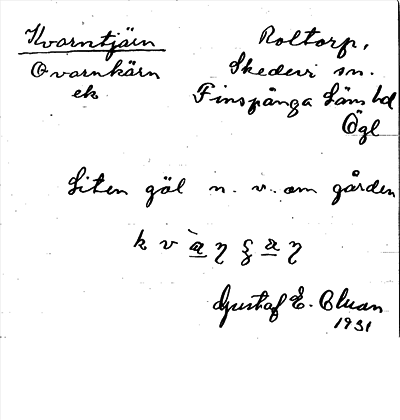 Kvarntjärn Roltorp,
Qvarnkärn Skedevi sn.
ek Finspånga Läns hd
Ögl
Liten göl n. v. om gården
Gustaf E. Bluan
1931